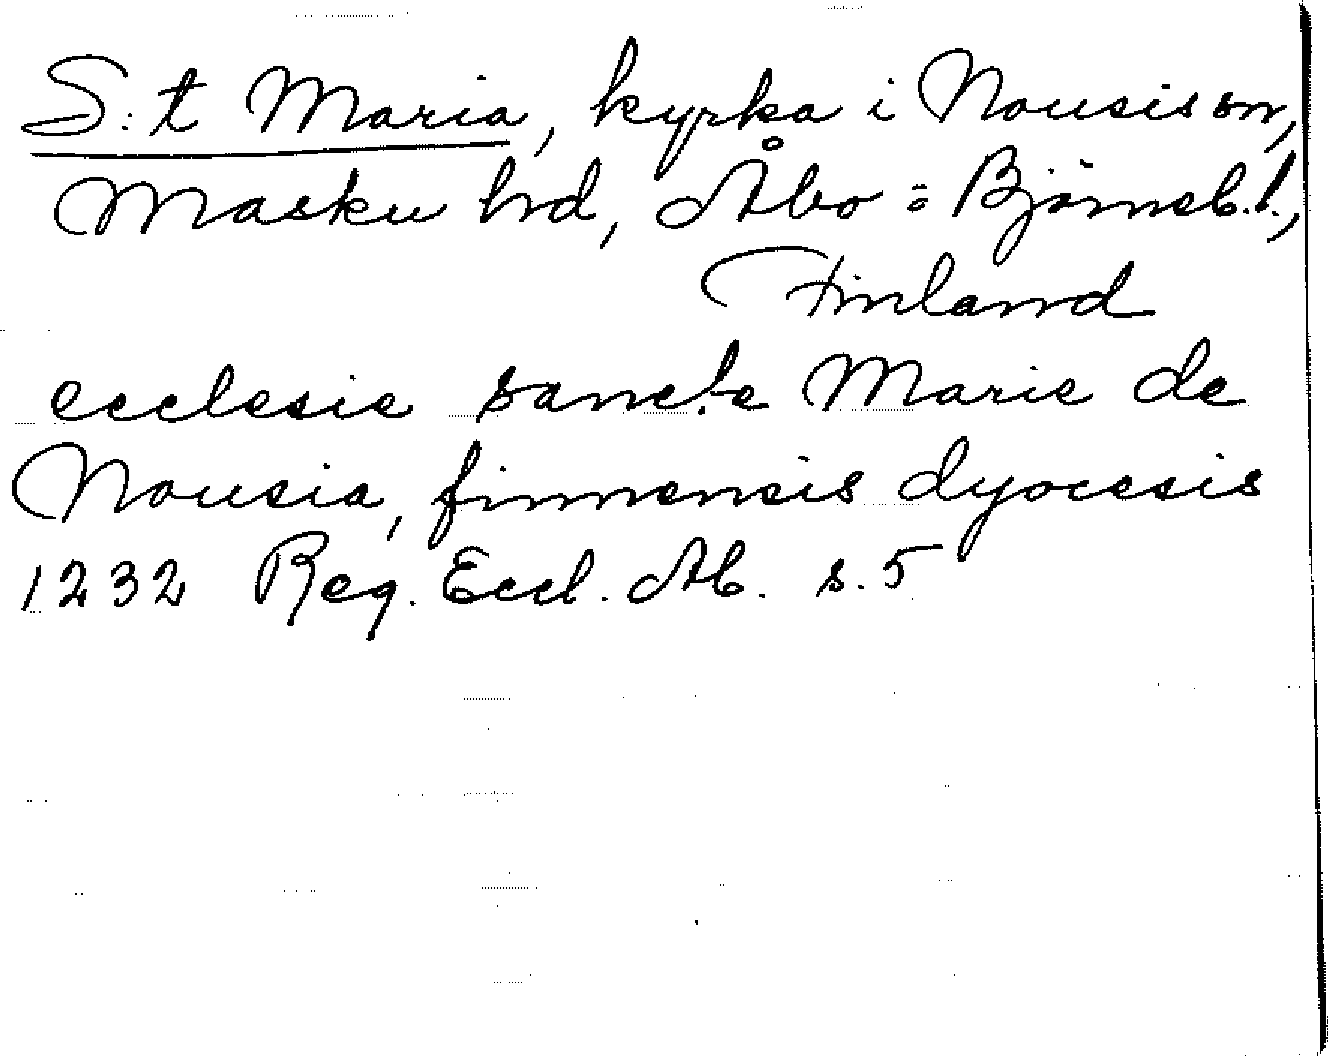 S:t Maria, kyrka i Nousis sn,
Masku hd, Åbo-Björneb.l.,
Finland
ecclesie sancte Marie de
Nousia, finnensis dyocesis
1232 Reg. Eccl. Ab. s. 5